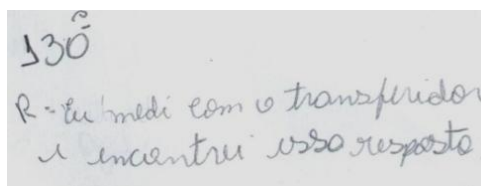 130º
R- Eu medi com o transferidor
e encontrei essa resposta